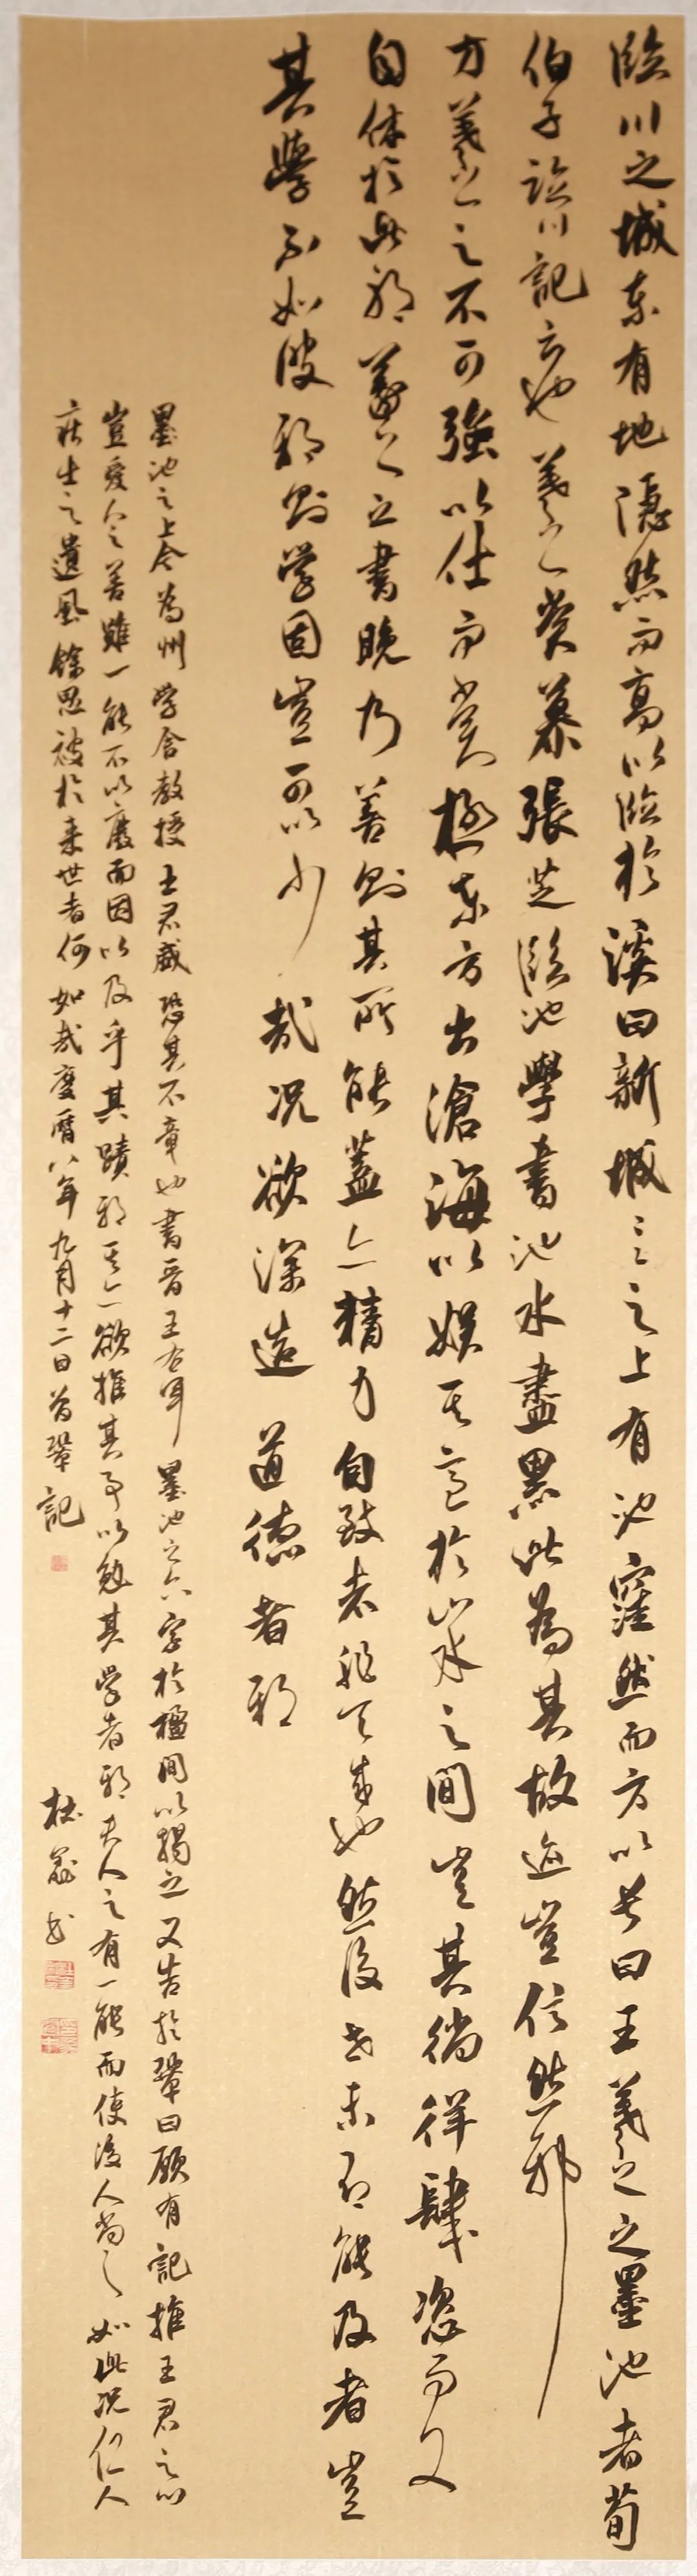 臨川之城東有地隱然而高以臨於溪曰新城新城之上有池窪然而方以長曰王羲之之墨池者荀
伯子臨川記云也羲之嘗慕張芝臨池學書池水盡黑此為其故迹豈信然邪
方羲之之不可強以仕而嘗極東方出滄海以娛其意於山水之間豈其徜徉肆恣而又
自休於此邪羲之之書晚乃善則其所能蓋亦精力自致者非天成也然後世未有能及者豈
其學不如彼邪則學固豈可以少哉况欲深造道德者邪
墨池之上今為州学舍教授王君盛恐其不章也書晋王右軍墨池之六字於楹間以揭之又告於鞏曰願有記推王君之心
豈愛人之善雖一能不以廢而因以及乎其蹟邪其亦欲推其事以勉其学者邪夫人之有一能而使後人尚之如此况仁人
莊士之遺風餘思被於来世者何如哉慶曆八年九月十二日曾鞏記